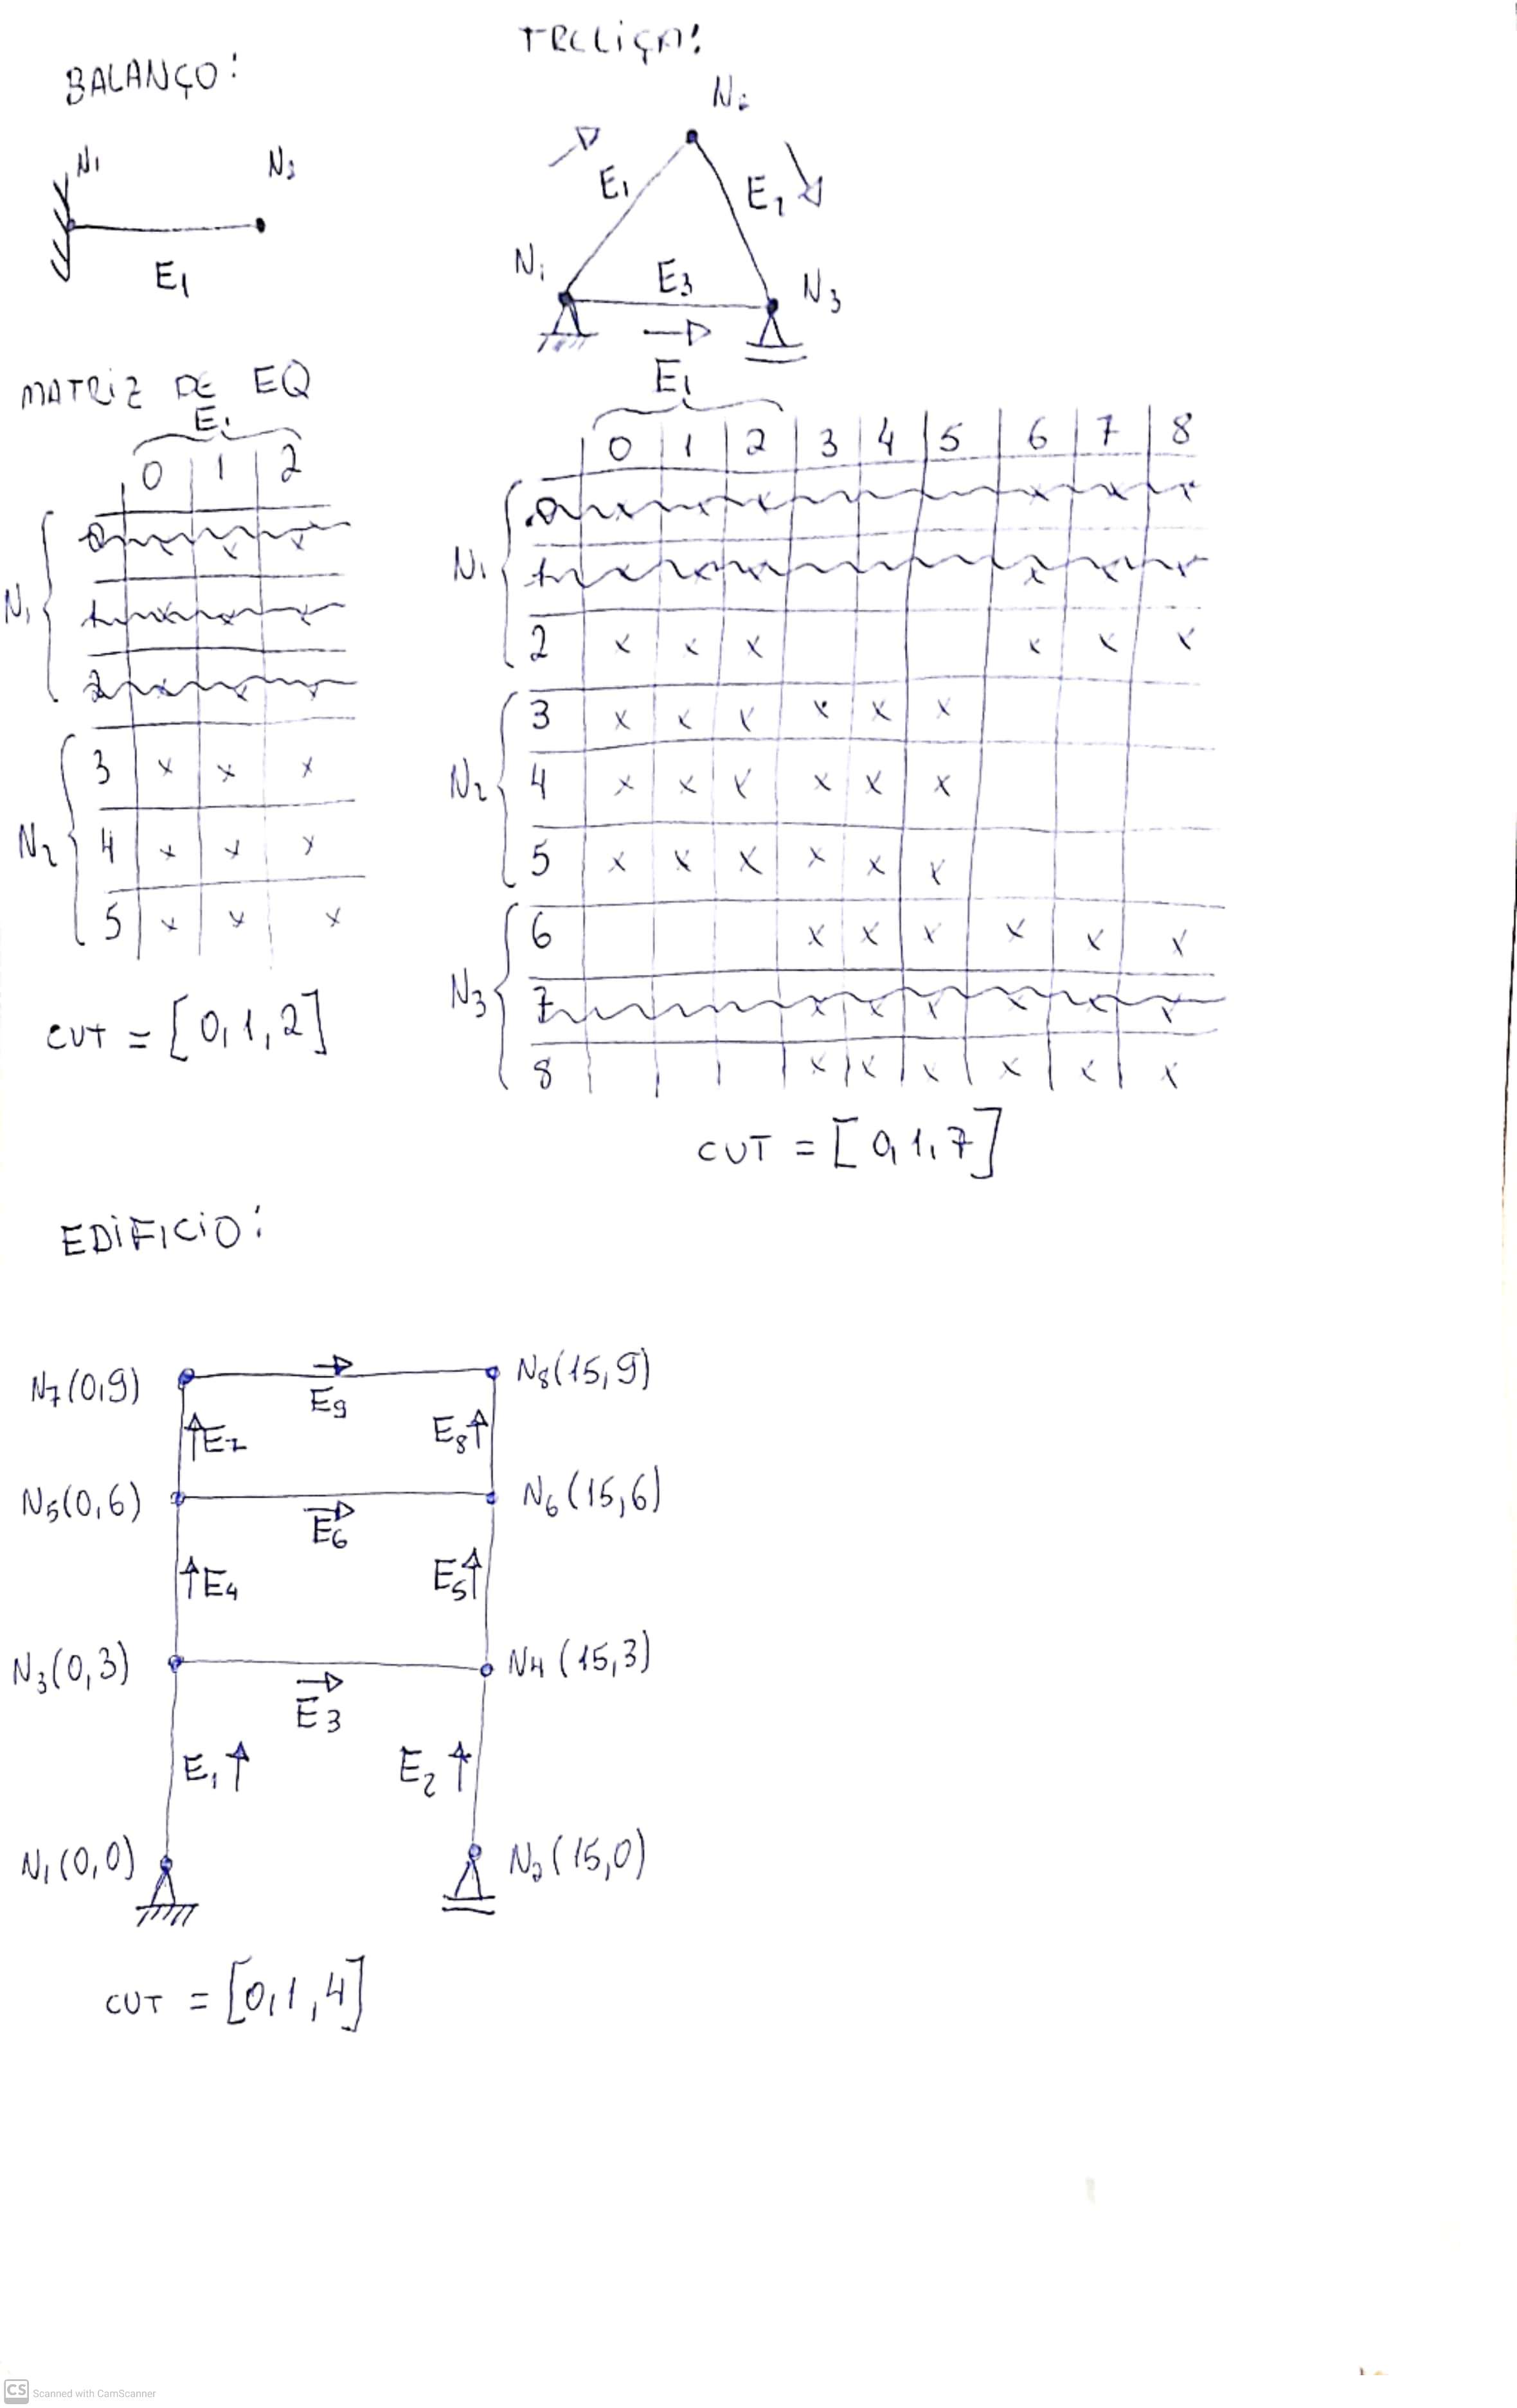 BALANÇO:
N1
N2
E1
MATRIZ DE EQ
E1
0 1 2
N1
0 x x x
1 x x x
2 x x x
N2
3 x x x
4 x x x
5 x x x
CUT = [0,1,2]
TRELIÇA:
N2
E1
E2
N1
E3
N3
E1
0 1 2 3 4 5 6 7 8
N1
0 x x x x x x
1 x x x x x x
2 x x x x x x
N2
3 x x x x x x
4 x x x x x x
5 x x x x x x
N3
6 x x x x x x
7 x x x x x x
8 x x x x x x
CUT = [0,1,7]
EDIFICIO:
N7(0,9)
E9
N8(15,9)
E7
E8
N5(0,6)
E6
N6(15,6)
E4
E5
N3(0,3)
E3
N4(15,3)
E1
E2
N1(0,0)
N2(15,0)
CUT = [0,1,4]
CS Scanned with CamScanner